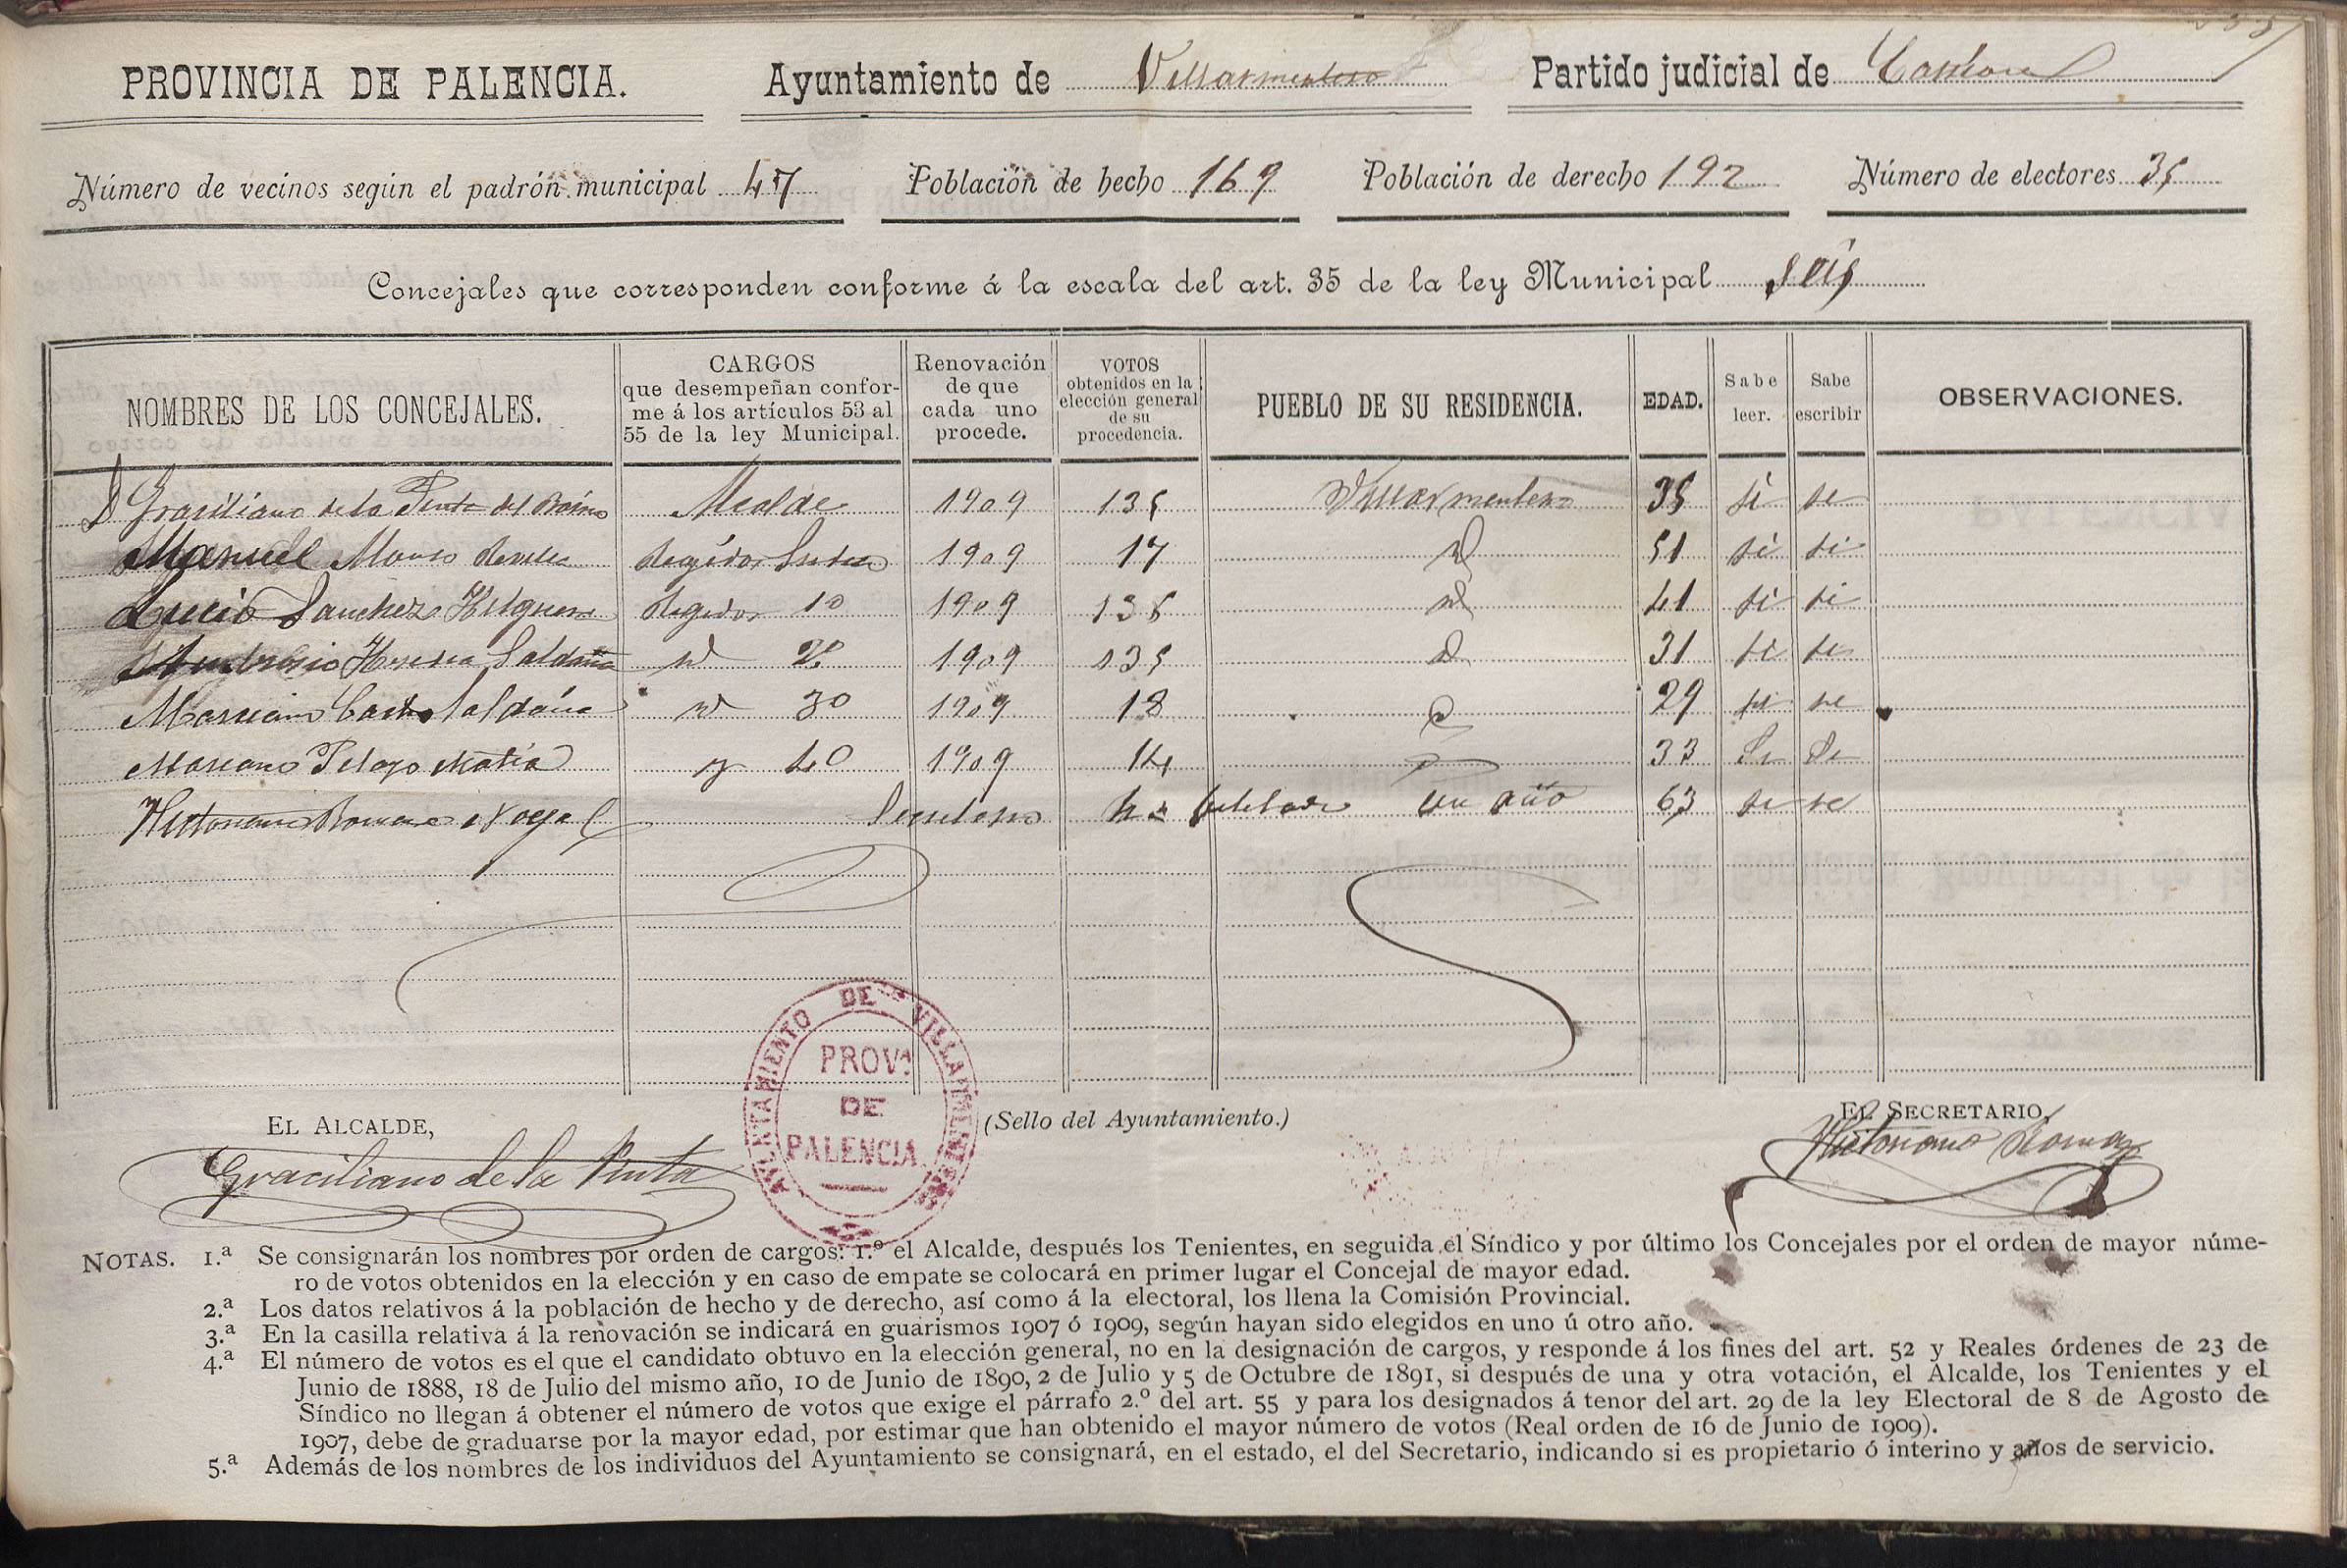 PROVINCIA DE PALENCIA. Ayuntamiento de Villarmentero Partido judicial de Carrion
Número de vecinos según el padrón municipal 47 Población de hecho 169 Población de derecho 192 Número de electores 35
Concejales que corresponden conforme á la escala del art. 35 de la ley Municipal seis
NOMBRES DE LOS CONCEJALES. CARGOS que desempeñan confor-me á los artículos 53 al 55 de la ley Municipal. Renovación de que cada uno procede. VOTOS obtenidos en la elección general de su procedencia. PUEBLO DE SU RESIDENCIA. EDAD. Sabe leer. Sabe escribir OBSERVACIONES.
D Graciliano de la Pinta del Alcalde 1909 135 Villarmentero 35 si si
Manuel Regidor 1909 17 id 51 si si
Lucio Sanchez Regidor 1º 1909 135 id 41 si si
Ambrosio Herrera Saldaña id 2º 1909 135 id 31 si si
Marciano Castro Saldaña id 3º 1909 18 id 29 si si
Mariano Pelayo Matia y 40 1909 14 33 Si Si
Victoriano Roman Nogal Secretario un año 63 si si
AYUNTAMIENTO DE VILLARMENTERO
PROVA
DE
PALENCIA
EL ALCALDE, (Sello del Ayuntamiento.) EL SECRETARIO,
Graciliano de la Pinta Victoriano Roman
NOTAS. 1.ª Se consignarán los nombres por orden de cargos: 1.º el Alcalde, después los Tenientes, en seguida el Síndico y por último los Concejales por el orden de mayor núme-
ro de votos obtenidos en la elección y en caso de empate se colocará en primer lugar el Concejal de mayor edad.
2.ª Los datos relativos á la población de hecho y de derecho, así como á la electoral, los llena la Comisión Provincial.
3.ª En la casilla relativa á la renovación se indicará en guarismos 1907 ó 1909, según hayan sido elegidos en uno ú otro año.
4.ª El número de votos es el que el candidato obtuvo en la elección general, no en la designación de cargos, y responde á los fines del art. 52 y Reales órdenes de 23 de
Junio de 1888, 18 de Julio del mismo año, 10 de Junio de 1890, 2 de Julio y 5 de Octubre de 1891, si después de una y otra votación, el Alcalde, los Tenientes y el
Síndico no llegan á obtener el número de votos que exige el párrafo 2.º del art. 55 y para los designados á tenor del art. 29 de la ley Electoral de 8 de Agosto de
1907, debe de graduarse por la mayor edad, por estimar que han obtenido el mayor número de votos (Real orden de 16 de Junio de 1909).
5.ª Además de los nombres de los individuos del Ayuntamiento se consignará, en el estado, el del Secretario, indicando si es propietario ó interino y años de servicio.